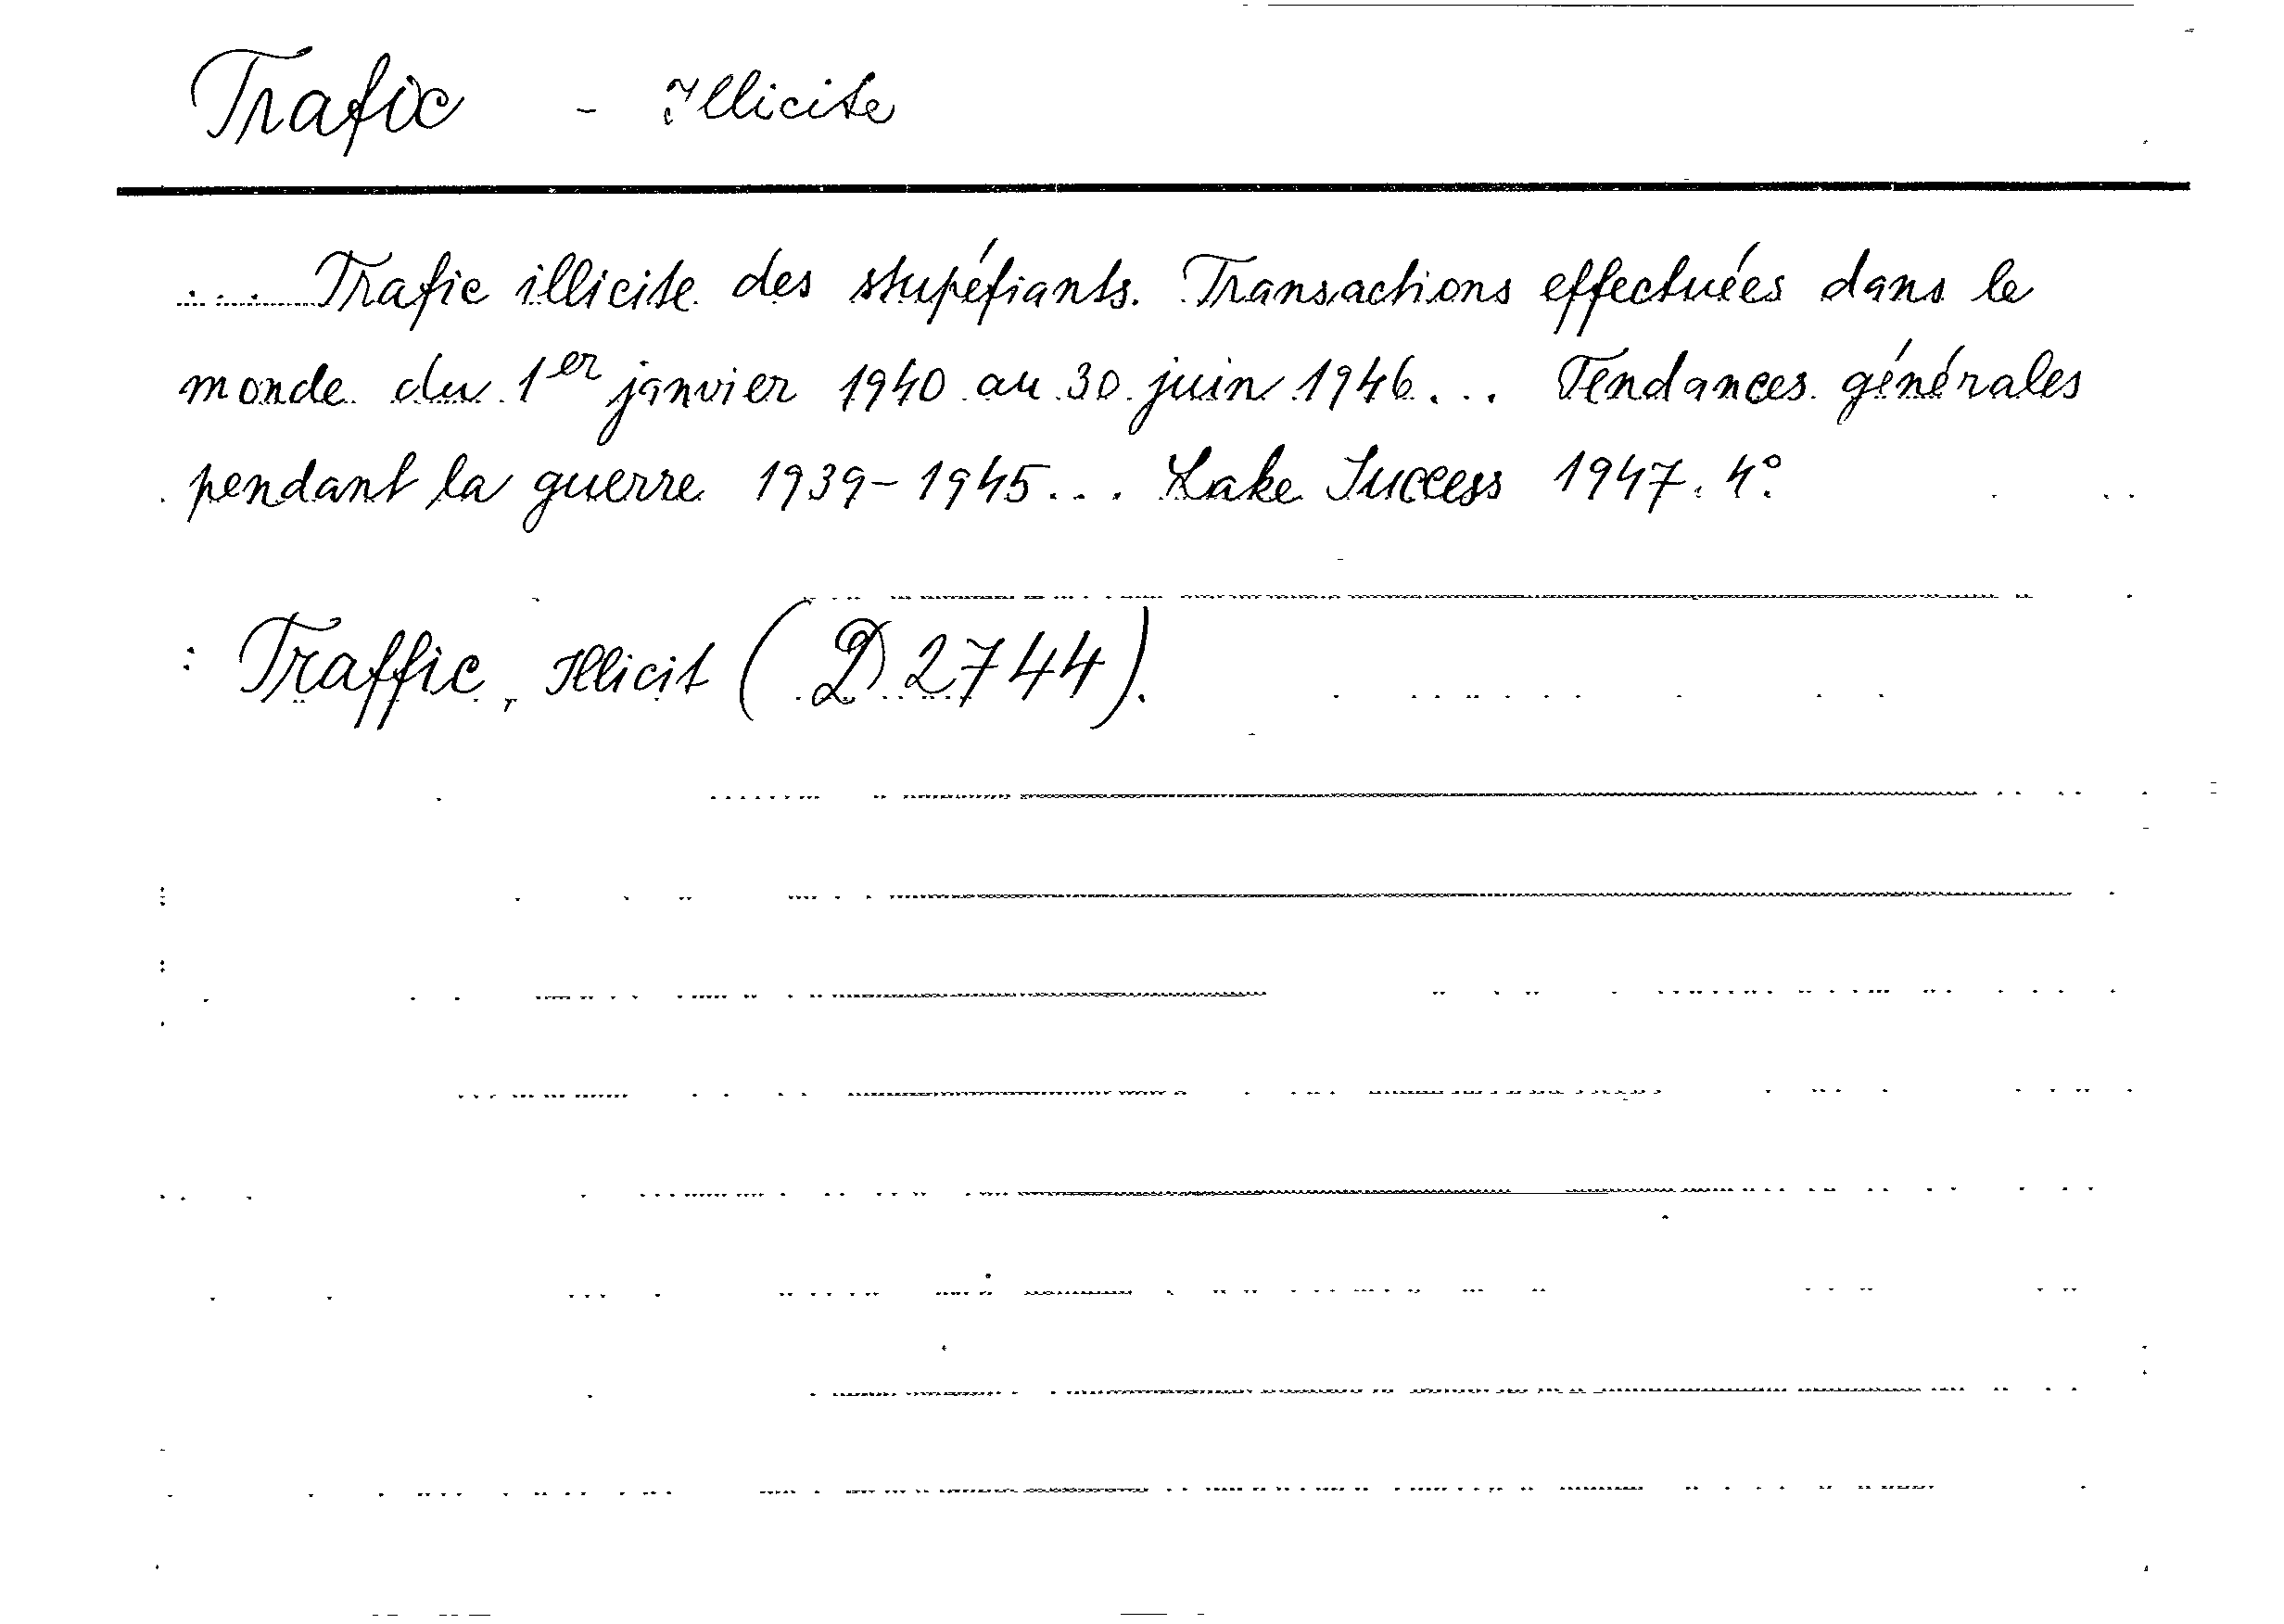 Trafic - Illicite
... Trafic illicite des stupéfiants. Transactions effectuées dans le
monde du 1er janvier 1940 au 30 juin 1946... Tendances générales
pendant la guerre 1939-1945... Lake Success 1947. 4°.
: Traffic, Illicit (D 2744).